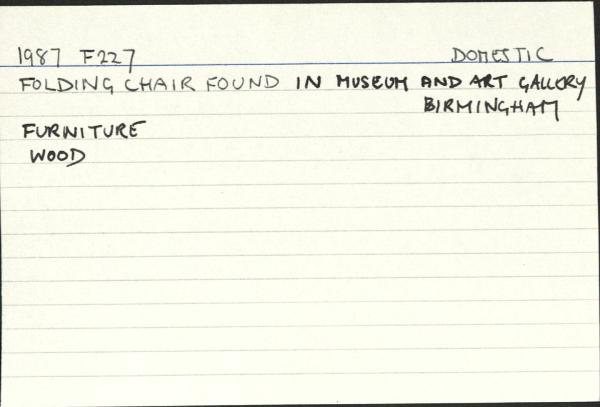 1987 F227 DOMESTIC
FOLDING CHAIR FOUND IN MUSEUM AND ART GALLERY
BIRMINGHAM
FURNITURE
WOOD